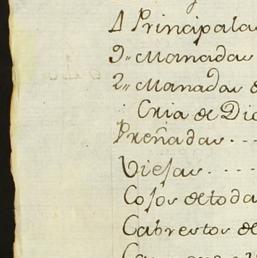 1 Principala
9,, Manadas
2,, Manadas d
Cria de Dic
Preñadas . . .
Viejas . . . .
Cojos de toda
Cabrestos de